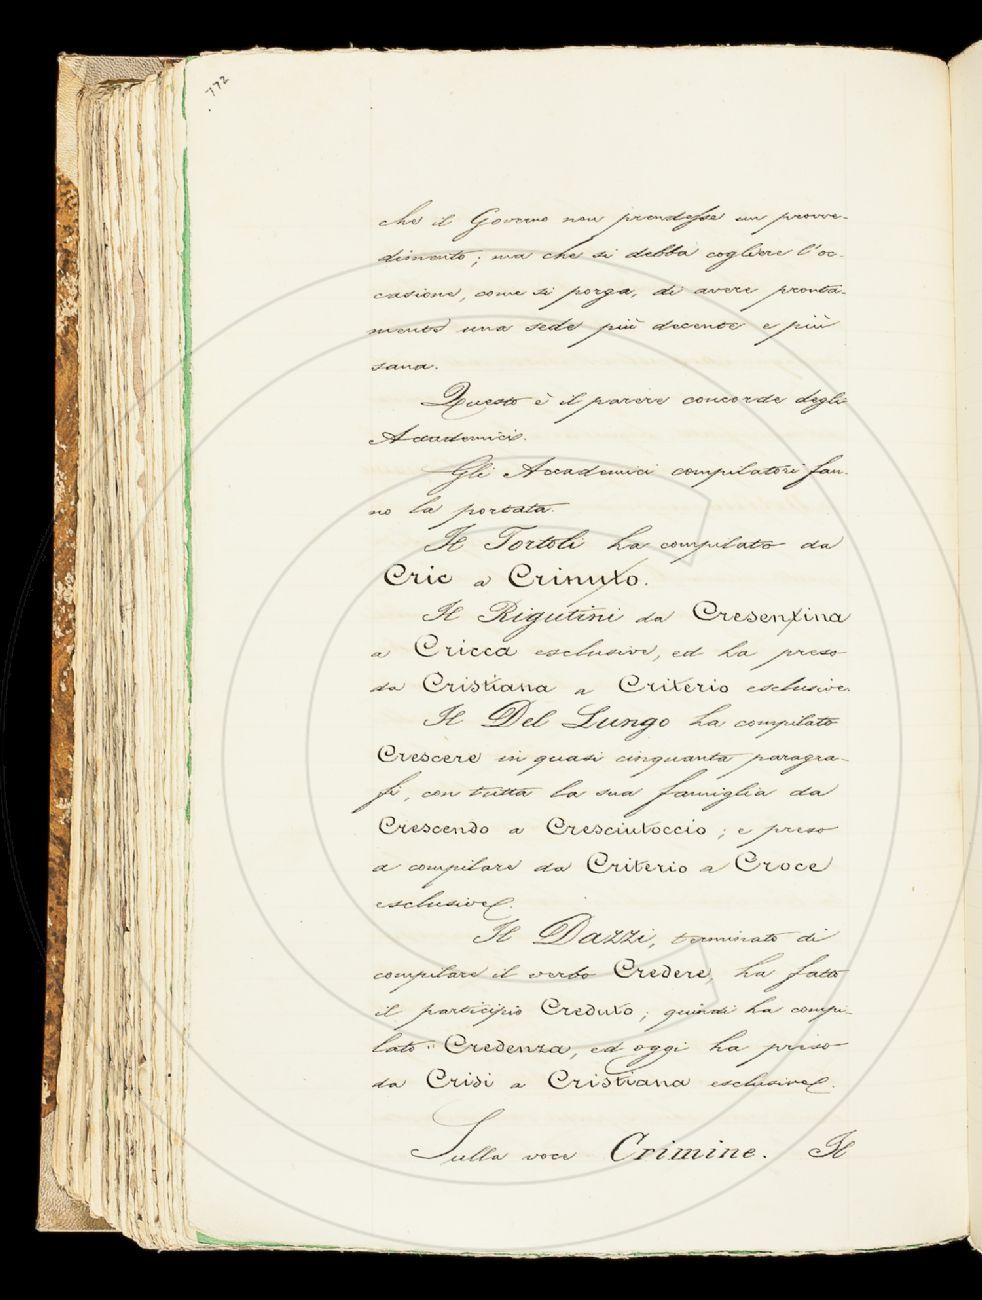 772
che il Governo non prendesse un provve-
dimento; ma che si debba cogliere l'oc-
casione, come si porga, di avere pronta-
mente una sede più decente e più
sana.
Questo è il parere concorde degli
Accademici.
Gli Accademici compilatori fan-
no la portata.
Il Tortoli ha compilato da
Cric a Crinuto.
Il Rigutini da Cresentina
a Cricca esclusive, ed ha preso
da Cristiana a Criterio esclusive.
Il Del Lungo ha compilato
Crescere in quasi cinquanta paragra-
fi, con tutta la sua famiglia da
Crescendo a Cresciutoccio; e preso
a compilare da Criterio a Croce
esclusive.
Il Dazzi, terminato di
compilare il verbo Credere, ha fatto
il participio Creduto; quindi ha compi-
lato Credenza, ed oggi ha preso
da Crisi a Cristiana esclusive.
Sulla voce Crimine. Il